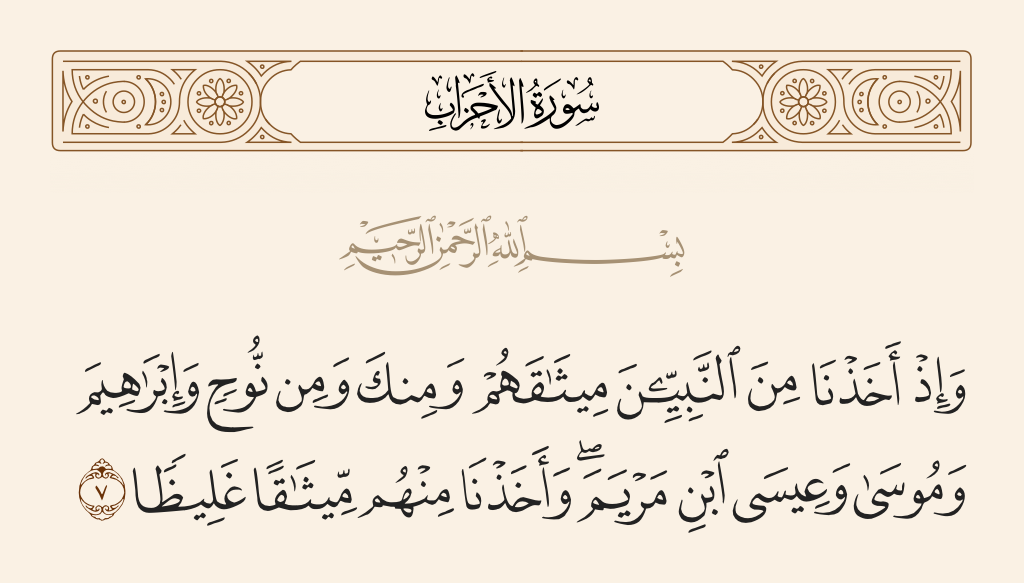 سُورَةُ الأَحْزَابِ
بِسْمِ ٱللَّهِ ٱلرَّحْمَٰنِ ٱلرَّحِيمِ
وَإِذْ أَخَذْنَا مِنَ ٱلنَّبِيِّـۧنَ مِيثَـٰقَهُمْ وَمِنكَ وَمِن نُّوحٍ وَإِبْرَٰهِيمَ
وَمُوسَىٰ وَعِيسَى ٱبْنِ مَرْيَمَ ۖ وَأَخَذْنَا مِنْهُم مِّيثَـٰقًا غَلِيظًا ٧